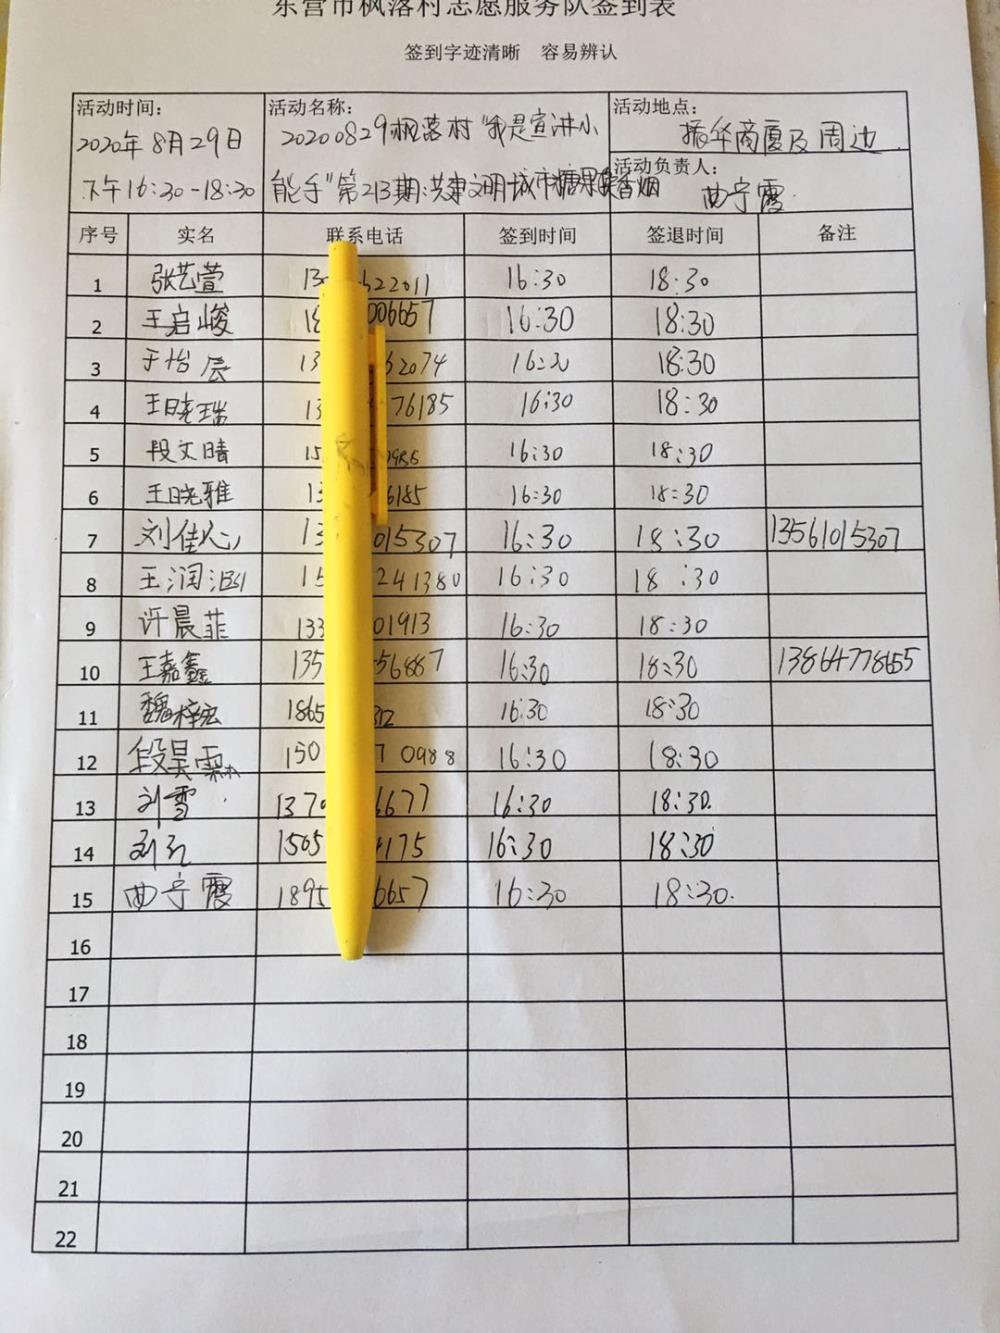 东营市枫落村志愿服务队签到表
签到字迹清晰 容易辨认
活动时间: 活动名称: 活动地点:
2020年8月29日 20200829枫落村"我是宣讲小 振华商厦及周边
活动负责人:
下午16:30-18:30 能手"第213期:共建文明城市糖果换香烟 曲宁霞
序号 实名 联系电话 签到时间 签退时间 备注
1 张艺萱 130 622011 16:30 18:30
2 王启峻 18 006657 16:30 18:30
3 于怡辰 13 62074 16:30 18:30
4 王晓瑞 13 76185 16:30 18:30
5 段文晴 15 0988 16:30 18:30
6 王晓雅 13 6185 16:30 18:30
7 刘佳心 13 015307 16:30 18:30 13561015307
8 王润 15 241380 16:30 18:30
9 许晨菲 133 01913 16:30 18:30
10 王嘉鑫 135 56887 16:30 18:30 13864778655
11 魏梓宏 1865 312 16:30 18:30
12 段昊霖 150 7 0988 16:30 18:30
13 刘雪 1370 6677 16:30 18:30
14 刘 1505 4175 16:30 18:30
15 曲宁霞 1895 6657 16:30 18:30
16
17
18
19
20
21
22